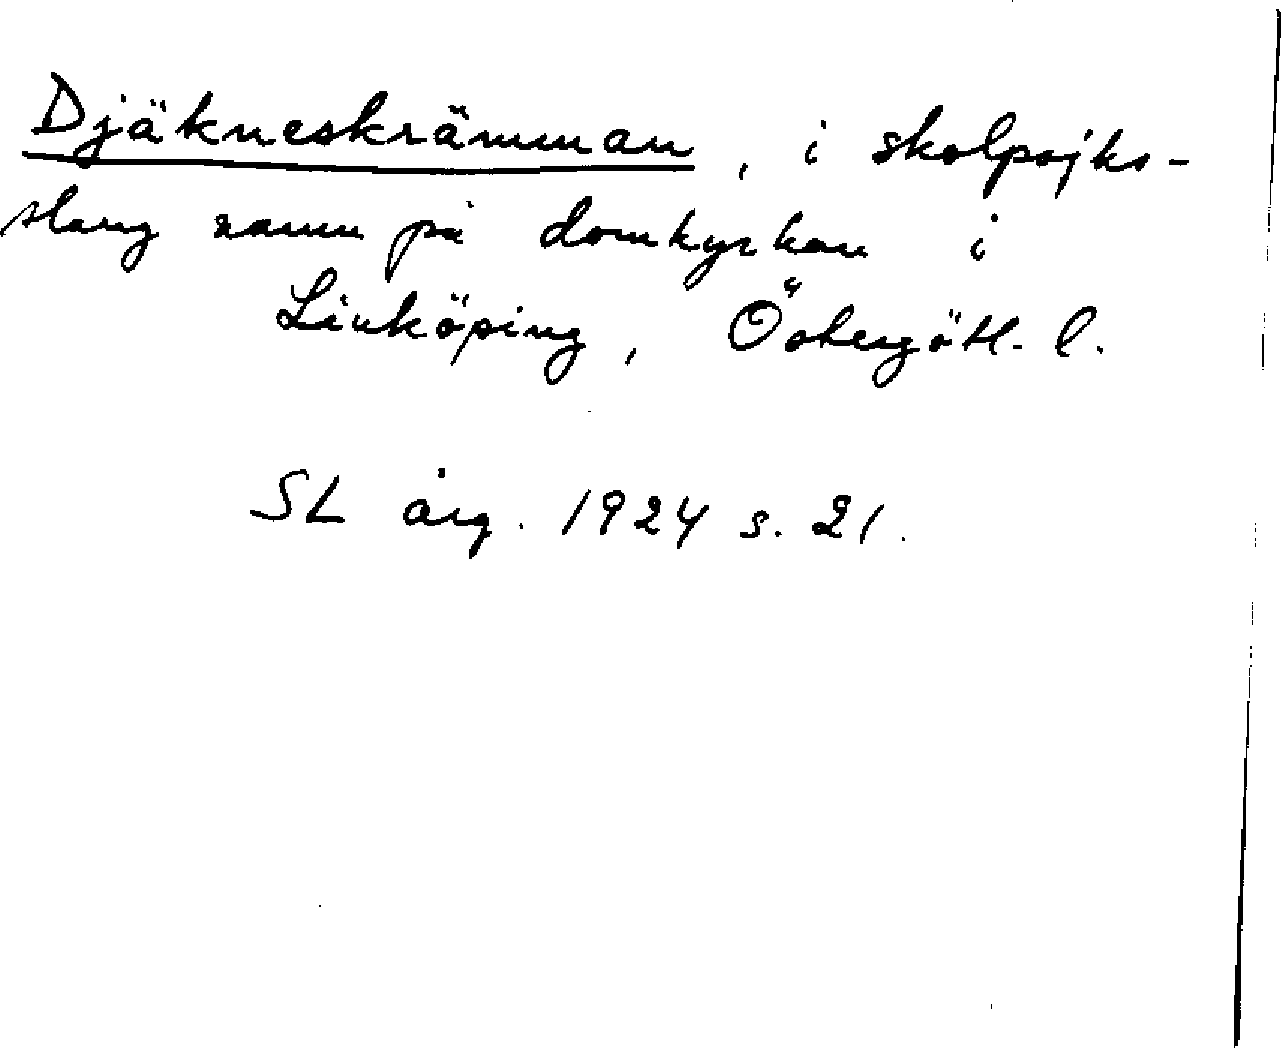 Djäkneskrämman, i skolpojks-
slang namn på domkyrkan i
Linköping, Östergötl. l.
SL årg. 1924 s. 21.